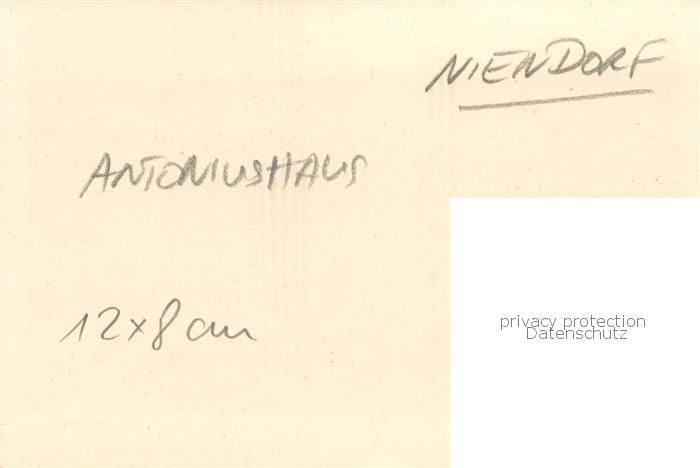 NIENDORF
ANTONIUSHAUS
12x8 cm
privacy protection
Datenschutz